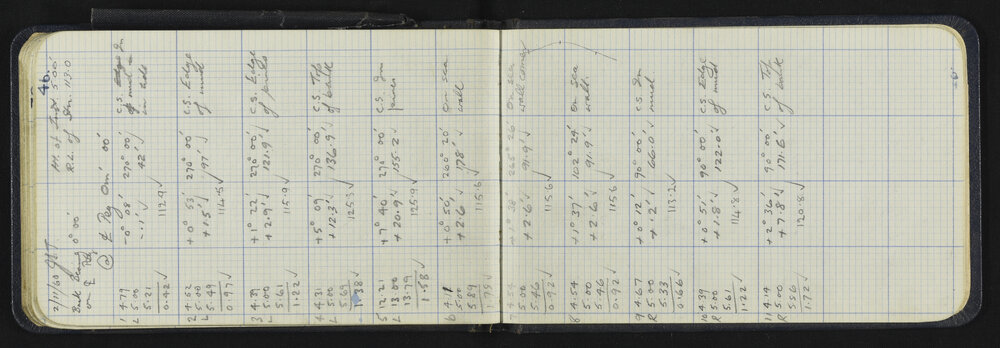 46.
2/11/60
Ht. of Inst. 5.00'
0° 00'
R.L. of Stn. 113.0
@ ₵ Peg Om' 00'
1 4.79 -0° 08' 270° 00' C.S. In
L 5.00 -.1'√ 42'√ of mud
5.21 in hole
0.42√ 112.9√
2 4.52 +0° 53' 270° 00' C.S. Edge
L 5.00 +1.5'√ 97'√ of mud
5.49
0.97√ 114.5√
3 4.39 +1° 22' 270° 00' C.S. Edge
L 5.00 +2.9'√ 121.9'√
5.61
1.22√ 115.9√
4 4.31 +5° 09' 270° 00' C.S. Top
L 5.00 +12.3'√ 136.9'√ of balk
5.69
1.38√ 125.3√
5 12.21 +7° 40' 270° 00' C.S. In
L 13.00 +20.9'√ 155.2'√
13.79
1.58√ 125.9√
6 +0° 50' 260° 20' on sea
5.00 +2.6'√ 178'√ wall
5.89
115.6√
7 4.54 +1° 38' 265° 26' On sea
5.00 +2.6'√ 91.9'√ wall corner
5.46
0.92√ 115.6√
8 4.54 +1° 37' 102° 29' On sea
5.00 +2.6'√ 91.9'√ wall.
5.46
0.92√ 115.6√
9 4.67 +0° 12' 90° 00' C.S. In
R 5.00 +.2'√ 66.0'√ mud
5.33
0.66√ 113.2√
10 4.39 +0° 51' 90° 00' C.S. Edge
R 5.00 +1.8'√ 122.0'√ of mud
5.61
1.22 114.8√
11 4.14 +2° 36' 90° 00' C.S. Top
R 5.00 +7.8'√ 171.6'√ of balk
5.86
1.72√ 120.8√